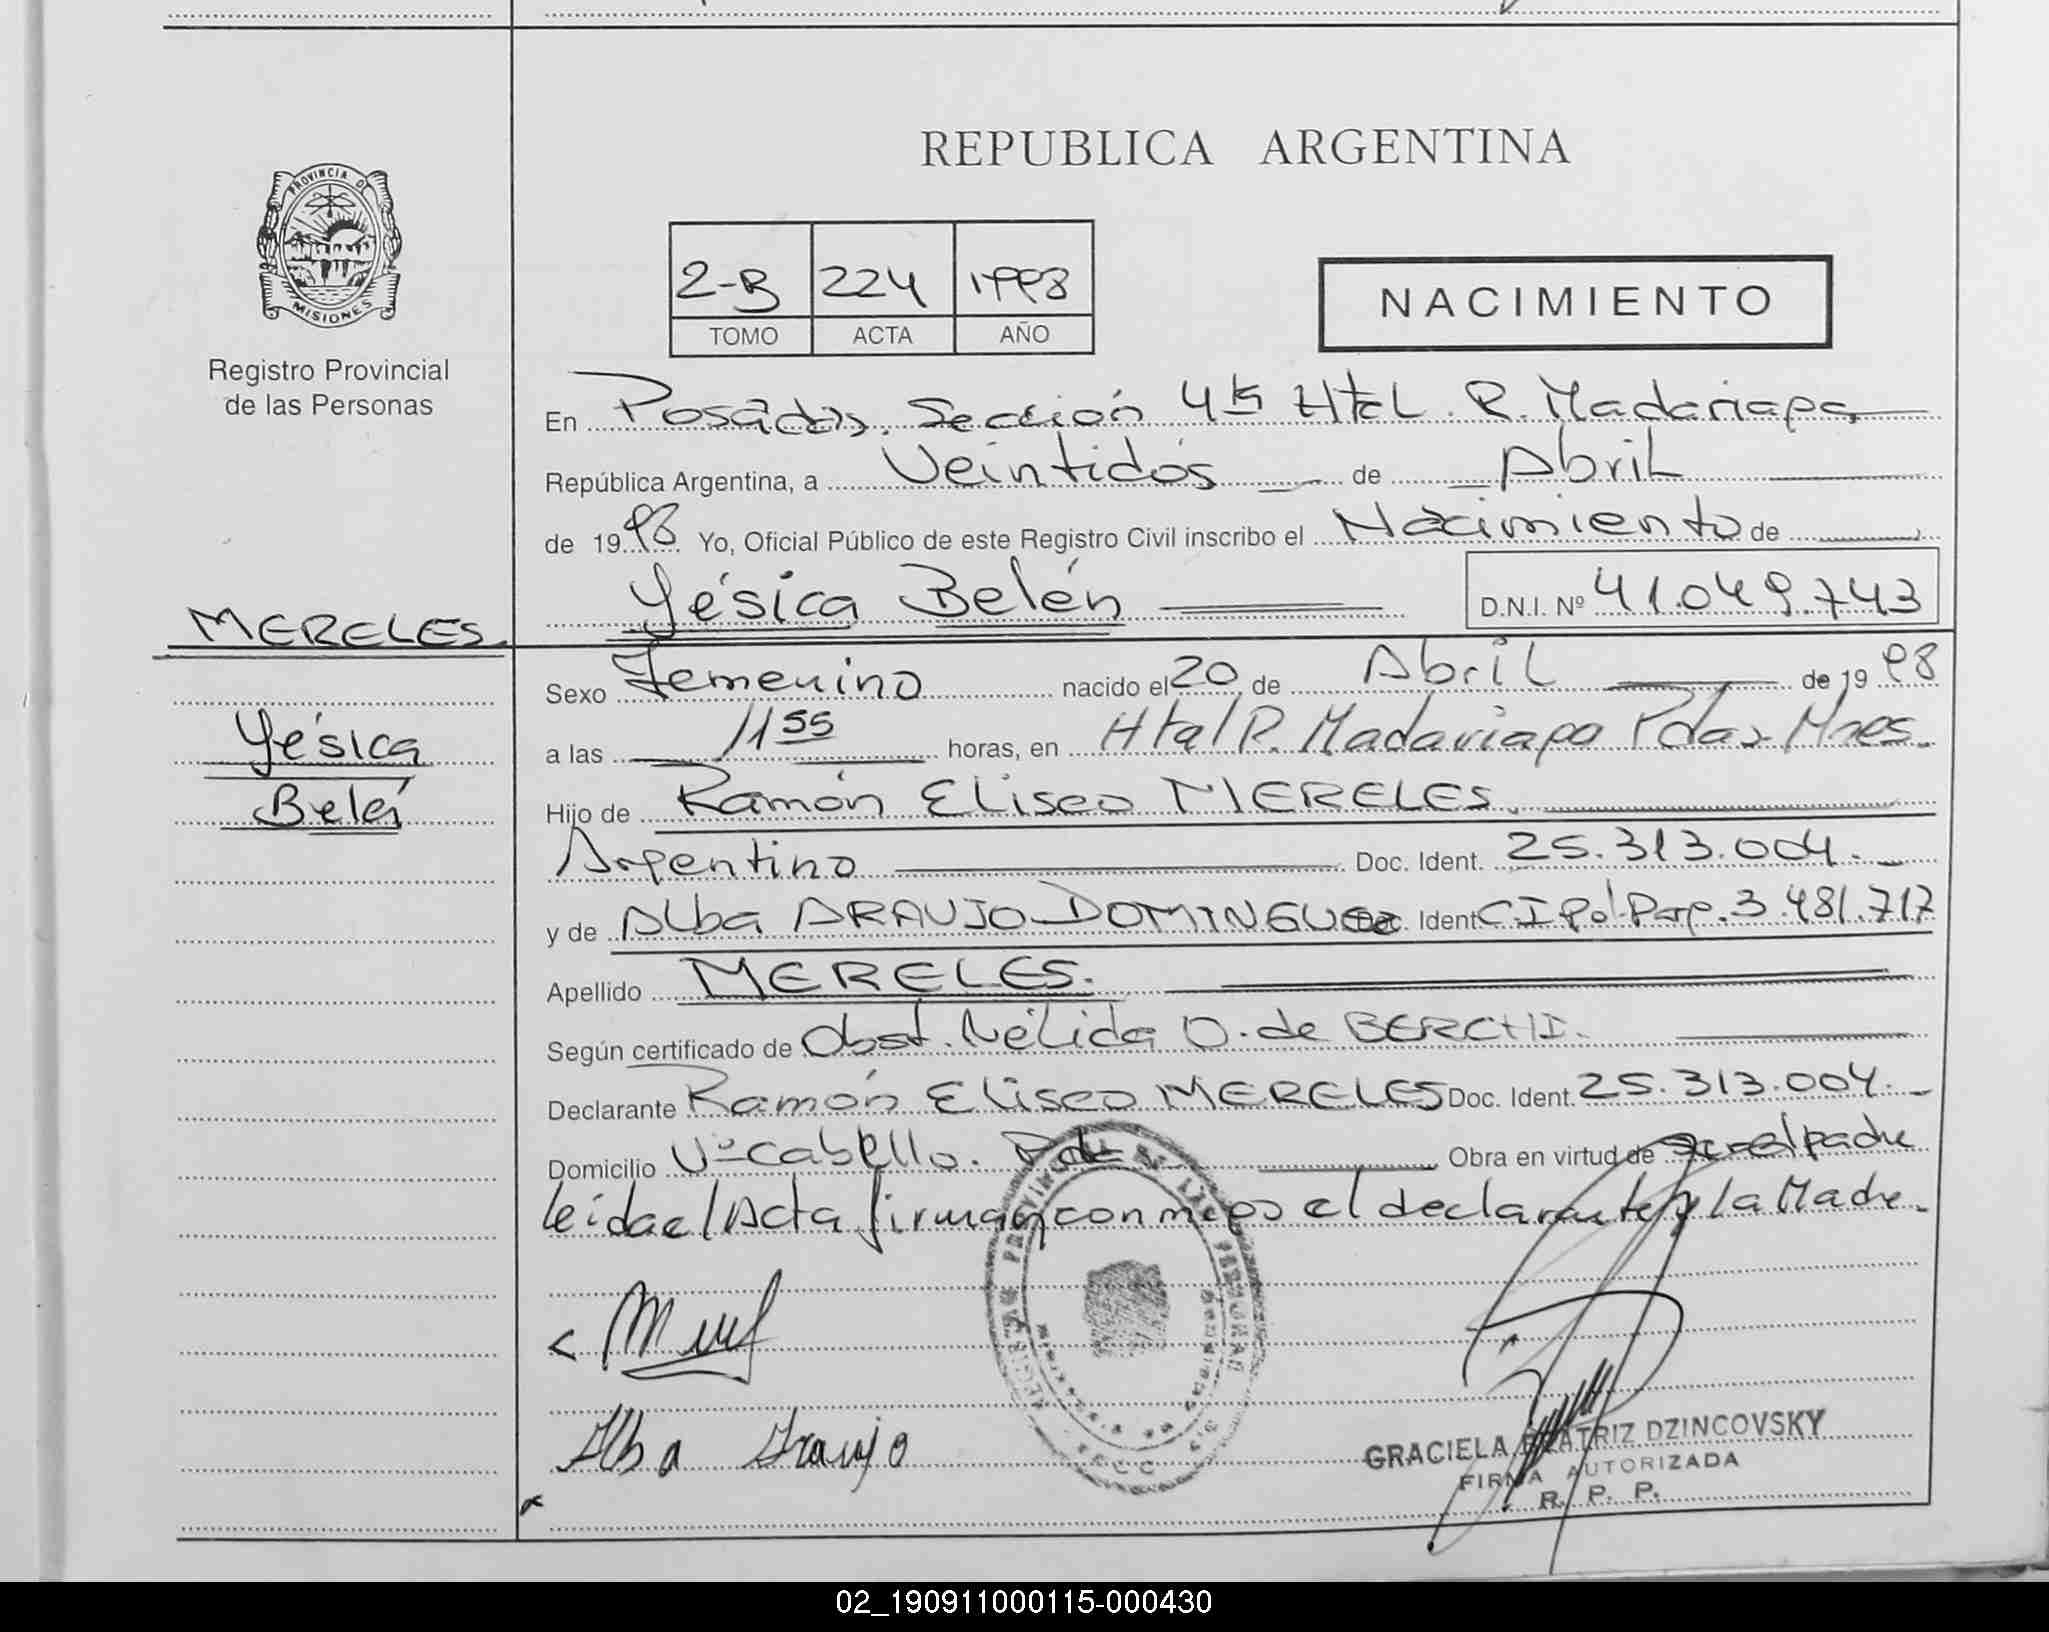 REPUBLICA ARGENTINA
PROVINCIA DE
MISIONES
Registro Provincial
de las Personas
2-B 224 1998
TOMO ACTA AÑO
NACIMIENTO
En Posadas. Sección 4ta Htal. R. Madariaga
República Argentina, a Veintidós de Abril
de 1998 Yo, Oficial Público de este Registro Civil inscribo el Nacimiento de
Yésica Belén D.N.I. Nº 41.049.743
MERELES.
Yésica
Belén
Sexo Femenino nacido el 20 de Abril de 1998
a las 11 55 horas, en Htal R. Madariaga Pdas Mnes.
Hijo de Ramón Eliseo MERELES.
Argentino Doc. Ident. 25.313.004.
y de Alba ARAUJO DOMINGUEZ Doc. Ident CI Pol. Par. 3.481.717
Apellido MERELES.
Según certificado de Obst. Nélida O. de BERCHI.
Declarante Ramón Eliseo MERELES Doc. Ident. 25.313.004.
Domicilio Vº Cabello. Pdas Obra en virtud de ser el padre
leída el Acta firman conmigo el declarante y la Madre.
Alba Araujo
GRACIELA BEATRIZ DZINCOVSKY
FIRMA AUTORIZADA
R. P. P.
02_190911000115-000430